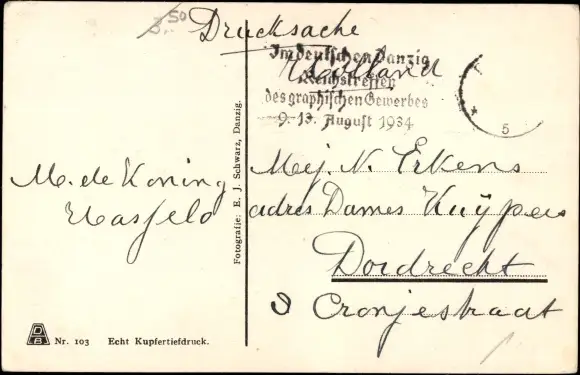 3.50
Drucksache
Im deutschen Danzig
Reichstreffen
des graphischen Gewerbes
9.-13. August 1934
Holland
5
M. de Koning
Mej. N. Erkens
adres Dames Kuÿpers
Dordrecht
Cronjestraat
Fotografie: E. J. Schwarz, Danzig.
DB
Nr. 103 Echt Kupfertiefdruck.